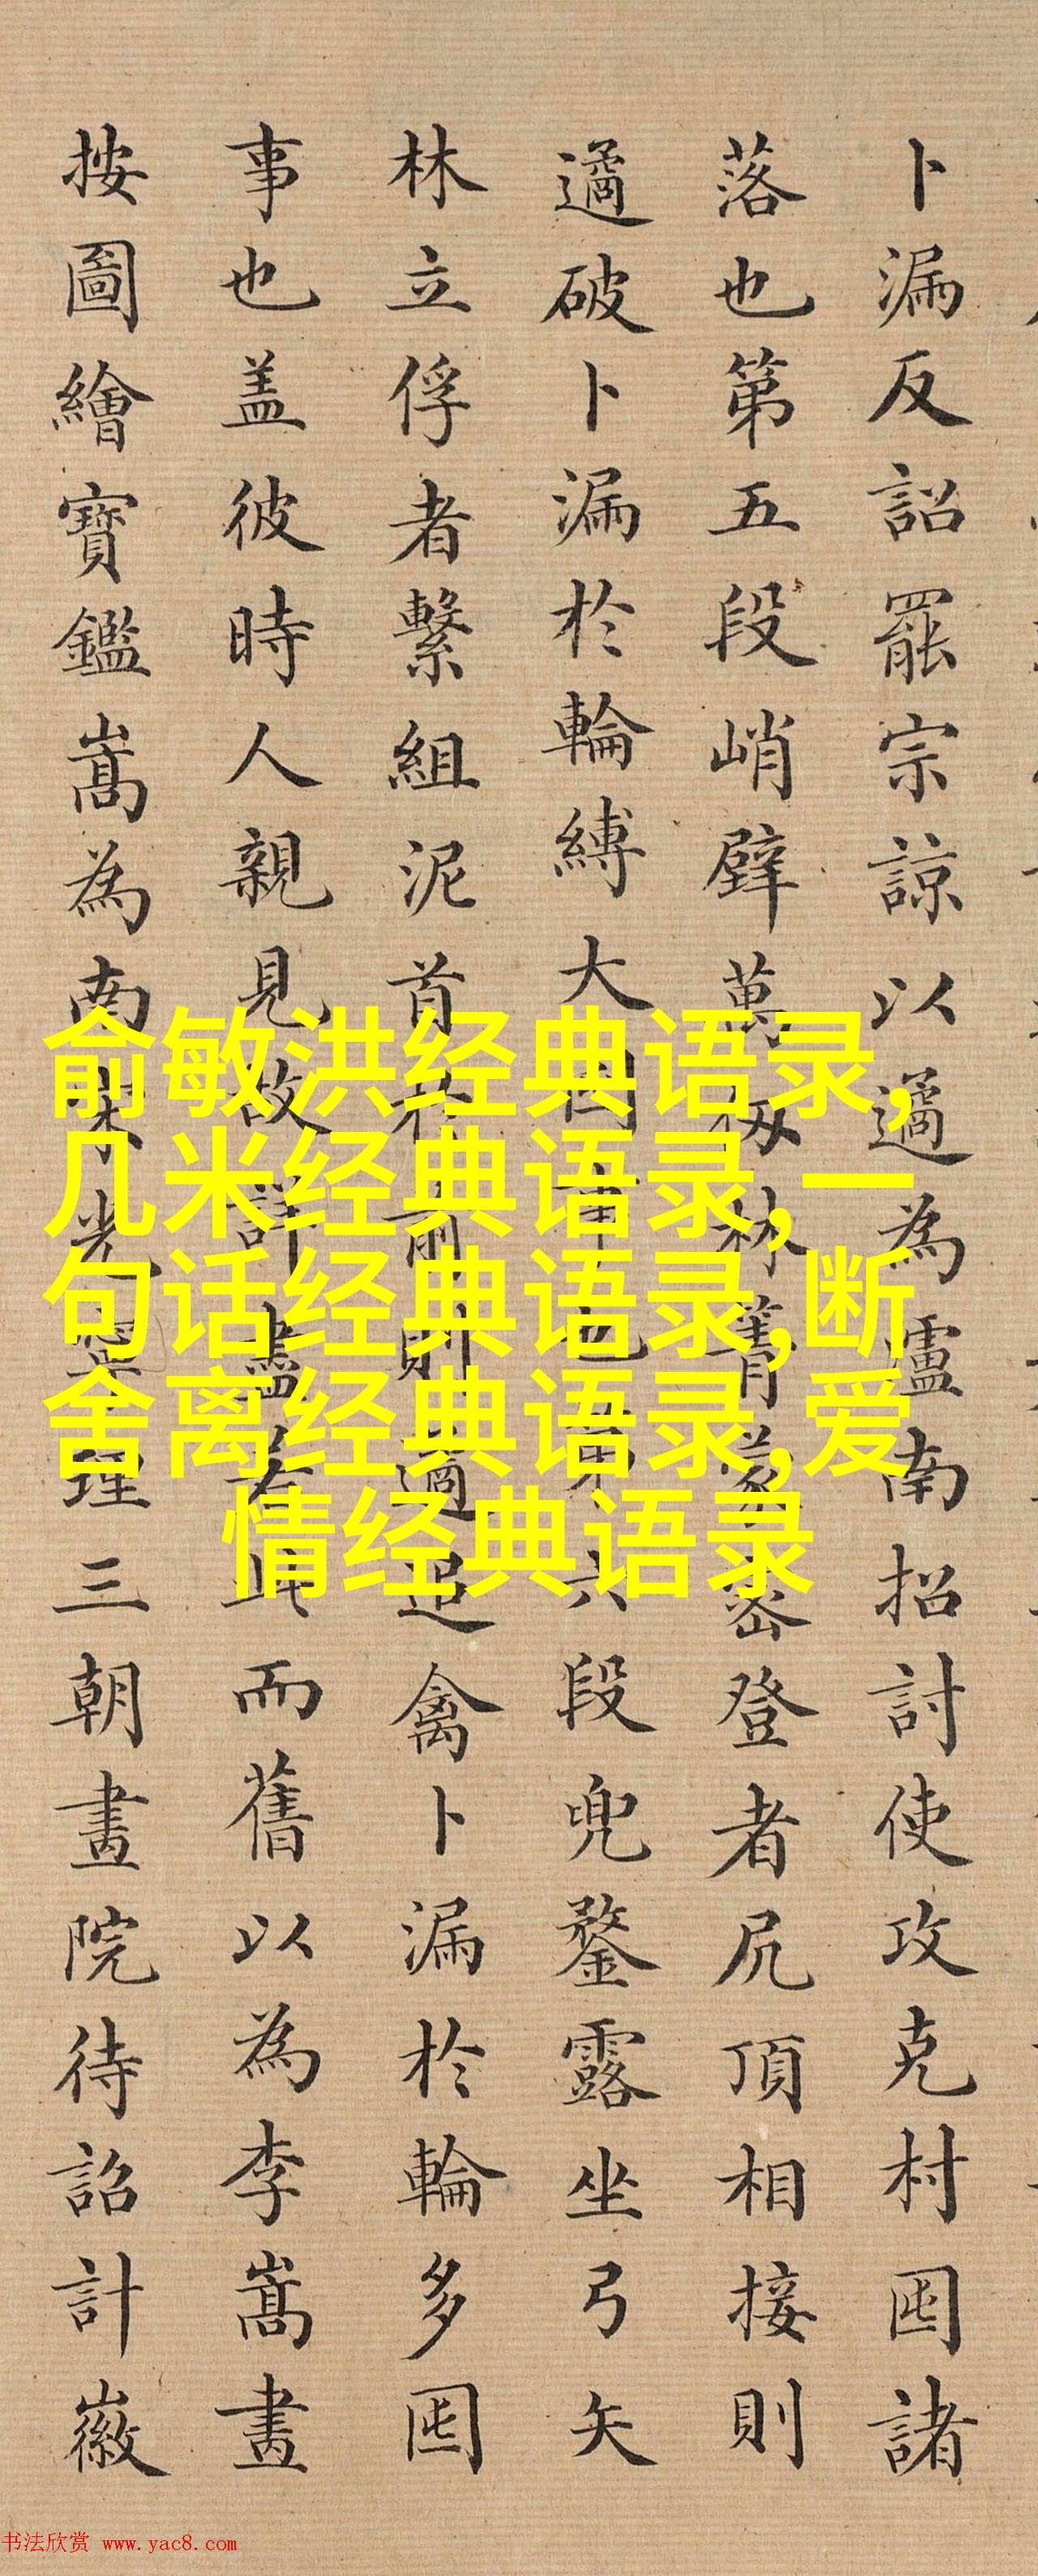 卜漏反詔罷宗諒以遹為瀘南招討使攻克村囤諸
落也第五段峭壁萬仭林菁蒙密登者尻頂相接則
遹破卜漏於輪縛大囤事也第六段兜鍪露坐弓矢
林立俘者繫組泥首於前則遹追禽卜漏於輪多囤
事也盖彼時人親見故詳盡若此而舊以為李嵩畫
按圖繪寶鑑嵩為南宋光寧理三朝畫院待詔計徽
俞敏洪经典语录,
几米经典语录,一
句话经典语录,断
舍离经典语录,爱
情经典语录
书法欣赏 www.yac8.com